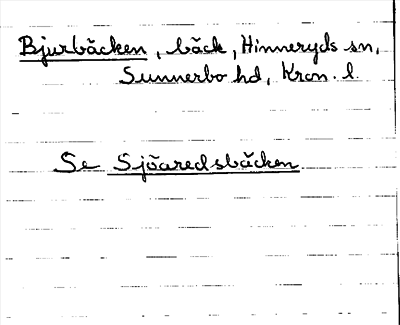 Bjurbäcken, bäck, Hinneryds sn,
Sunnerbo hd, Kron. l.
Se Sjöaredsbäcken